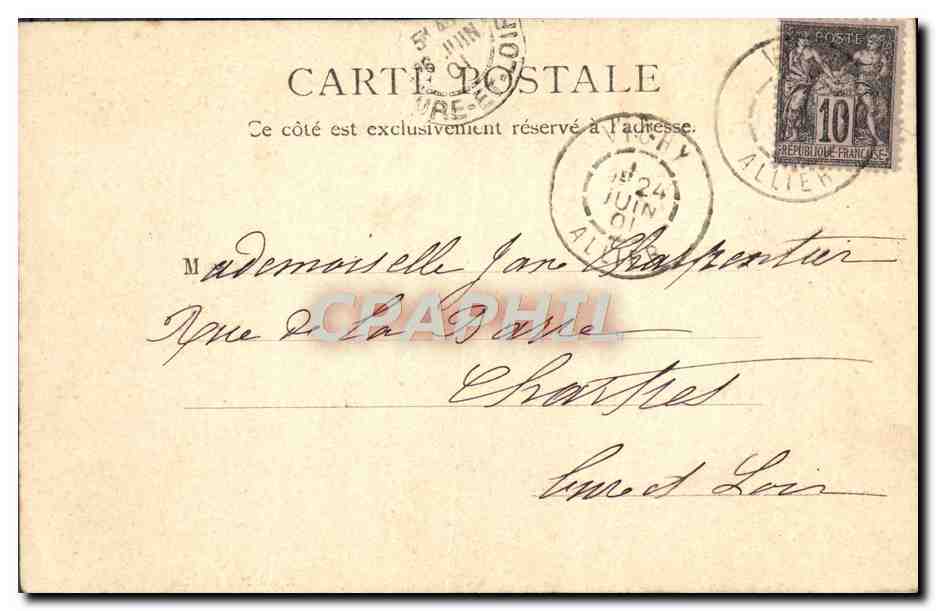 CARTE POSTALE
Ce côté est exclusivement réservé à l'adresse.
5E
26 JUIN
01
EURE-ET-LOIR
VICHY
24
JUIN
01
ALLIER
ALLIER
POSTE
10
RÉPUBLIQUE FRANÇAISE
Mademoiselle Jane Charpentier
Rue de la Barre
Chartres
Eure et Loir
CPAPHIL